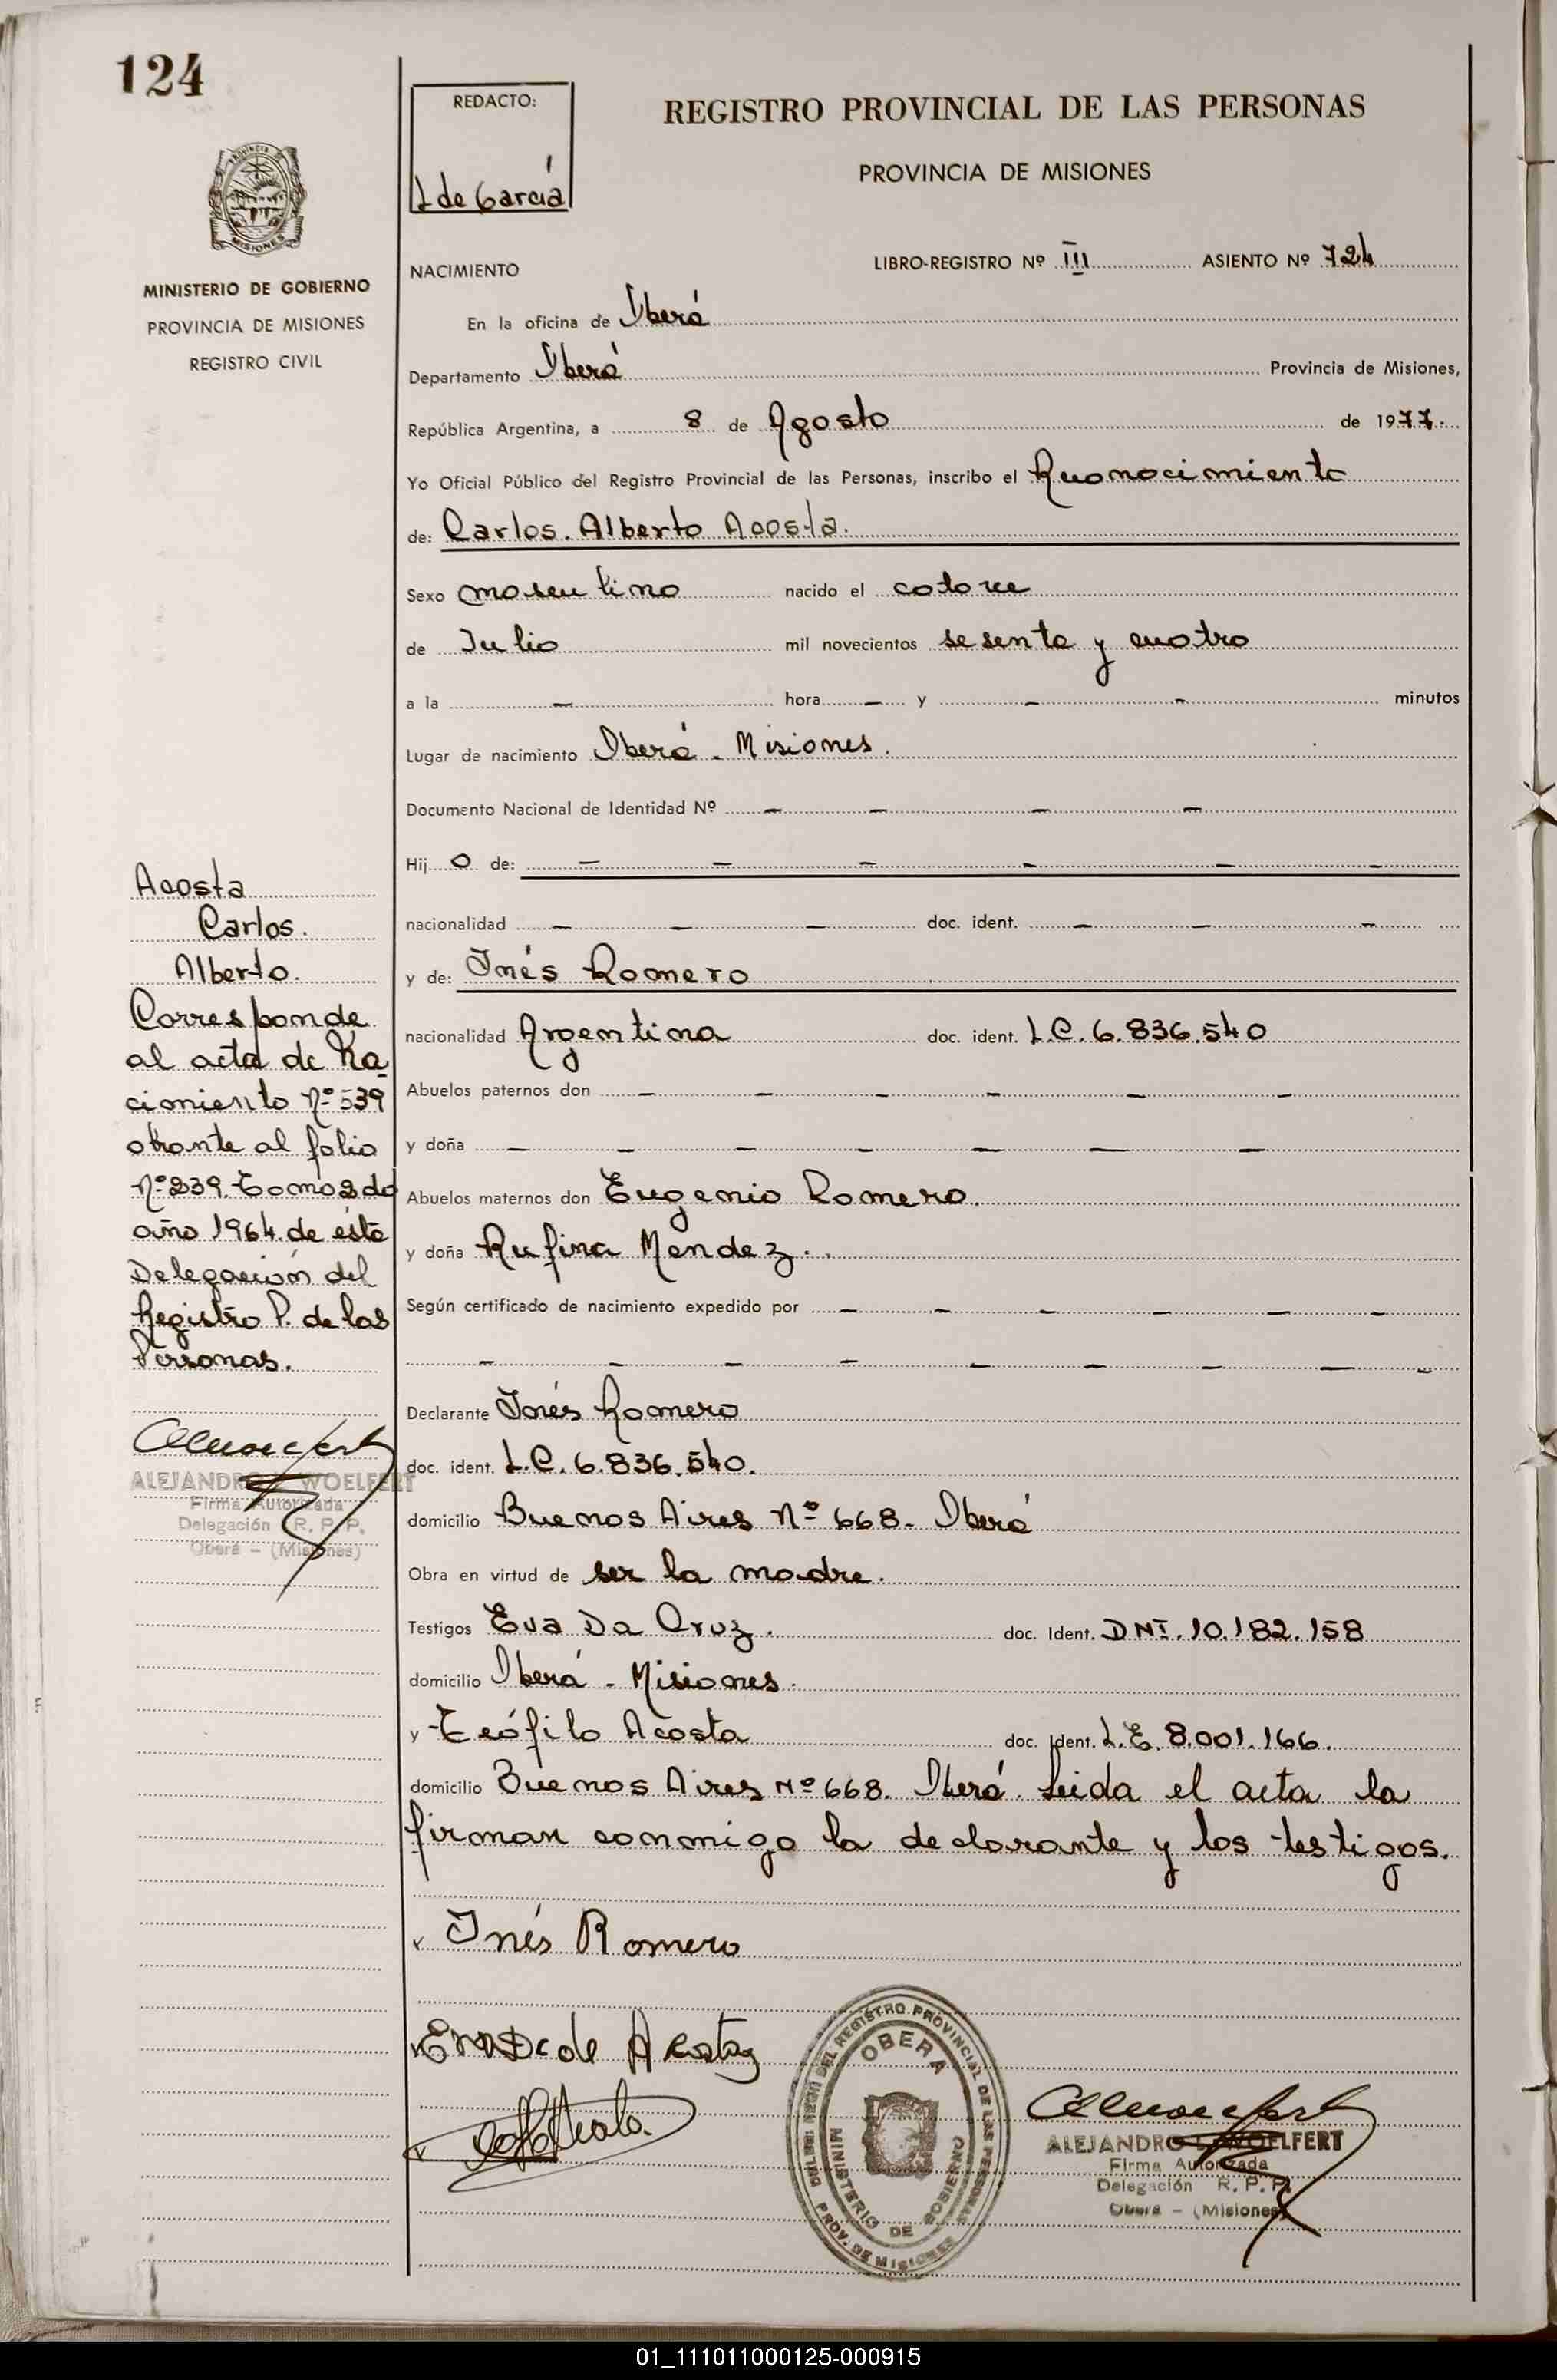 124
REDACTO:
L de García
REGISTRO PROVINCIAL DE LAS PERSONAS
PROVINCIA DE MISIONES
PROVINCIA DE
MISIONES
MINISTERIO DE GOBIERNO
PROVINCIA DE MISIONES
REGISTRO CIVIL
NACIMIENTO
LIBRO-REGISTRO Nº III ASIENTO Nº 724
En la oficina de Oberá
Departamento Oberá Provincia de Misiones,
República Argentina, a 8 de Agosto de 1977.
Yo Oficial Público del Registro Provincial de las Personas, inscribo el Reconocimiento
de: Carlos. Alberto Acosta.
Sexo masculino nacido el catorce
de Julio mil novecientos sesenta y cuatro
a la — hora — y — - minutos
Lugar de nacimiento Oberá - Misiones.
Documento Nacional de Identidad Nº — — — —
Hij o de: — — — — — —
nacionalidad — — — doc. ident. — — —
y de: Inés Romero
nacionalidad Argentina doc. ident. L.C. 6.836.540
Abuelos paternos don — — — — — —
y doña — — — — — — —
Abuelos maternos don Eugenio Romero.
y doña Rufina Mendez.
Según certificado de nacimiento expedido por — — — — — —
— — — — — — — — —
Declarante Inés Romero
doc. ident. L.C. 6.836.540.
domicilio Buenos Aires Nº 668- Oberá
Obra en virtud de ser la madre.
Testigos Eva Da Cruz. doc. Ident. DNI. 10.182.158
domicilio Oberá - Misiones.
y Teófilo Acosta doc. Ident. L.E. 8.001.166.
domicilio Buenos Aires Nº 668. Oberá. Leida el acta la
firman conmigo la declarante y los testigos.
Inés Romero
Acosta
Carlos.
Alberto.
Corresponde
al acta de Na-
cimiento Nº 539
obrante al folio
Nº 239. Tomo 2 do
año 1964. de ésta
Delegación del
Registro P. de las
Personas.
ALEJANDRO WOELFERT
Firma Autorizada
Delegación R. P. P.
Oberá - (Misiones)
de Acosta
DEL REGISTRO PROVINCIAL DE LAS PERSONAS
OBERA
MINISTERIO DE GOBIERNO
PROV. DE MISIONES
ALEJANDRO L. WOELFERT
Firma Autorizada
Delegación R. P. P.
Oberá - (Misiones)
01_111011000125-000915